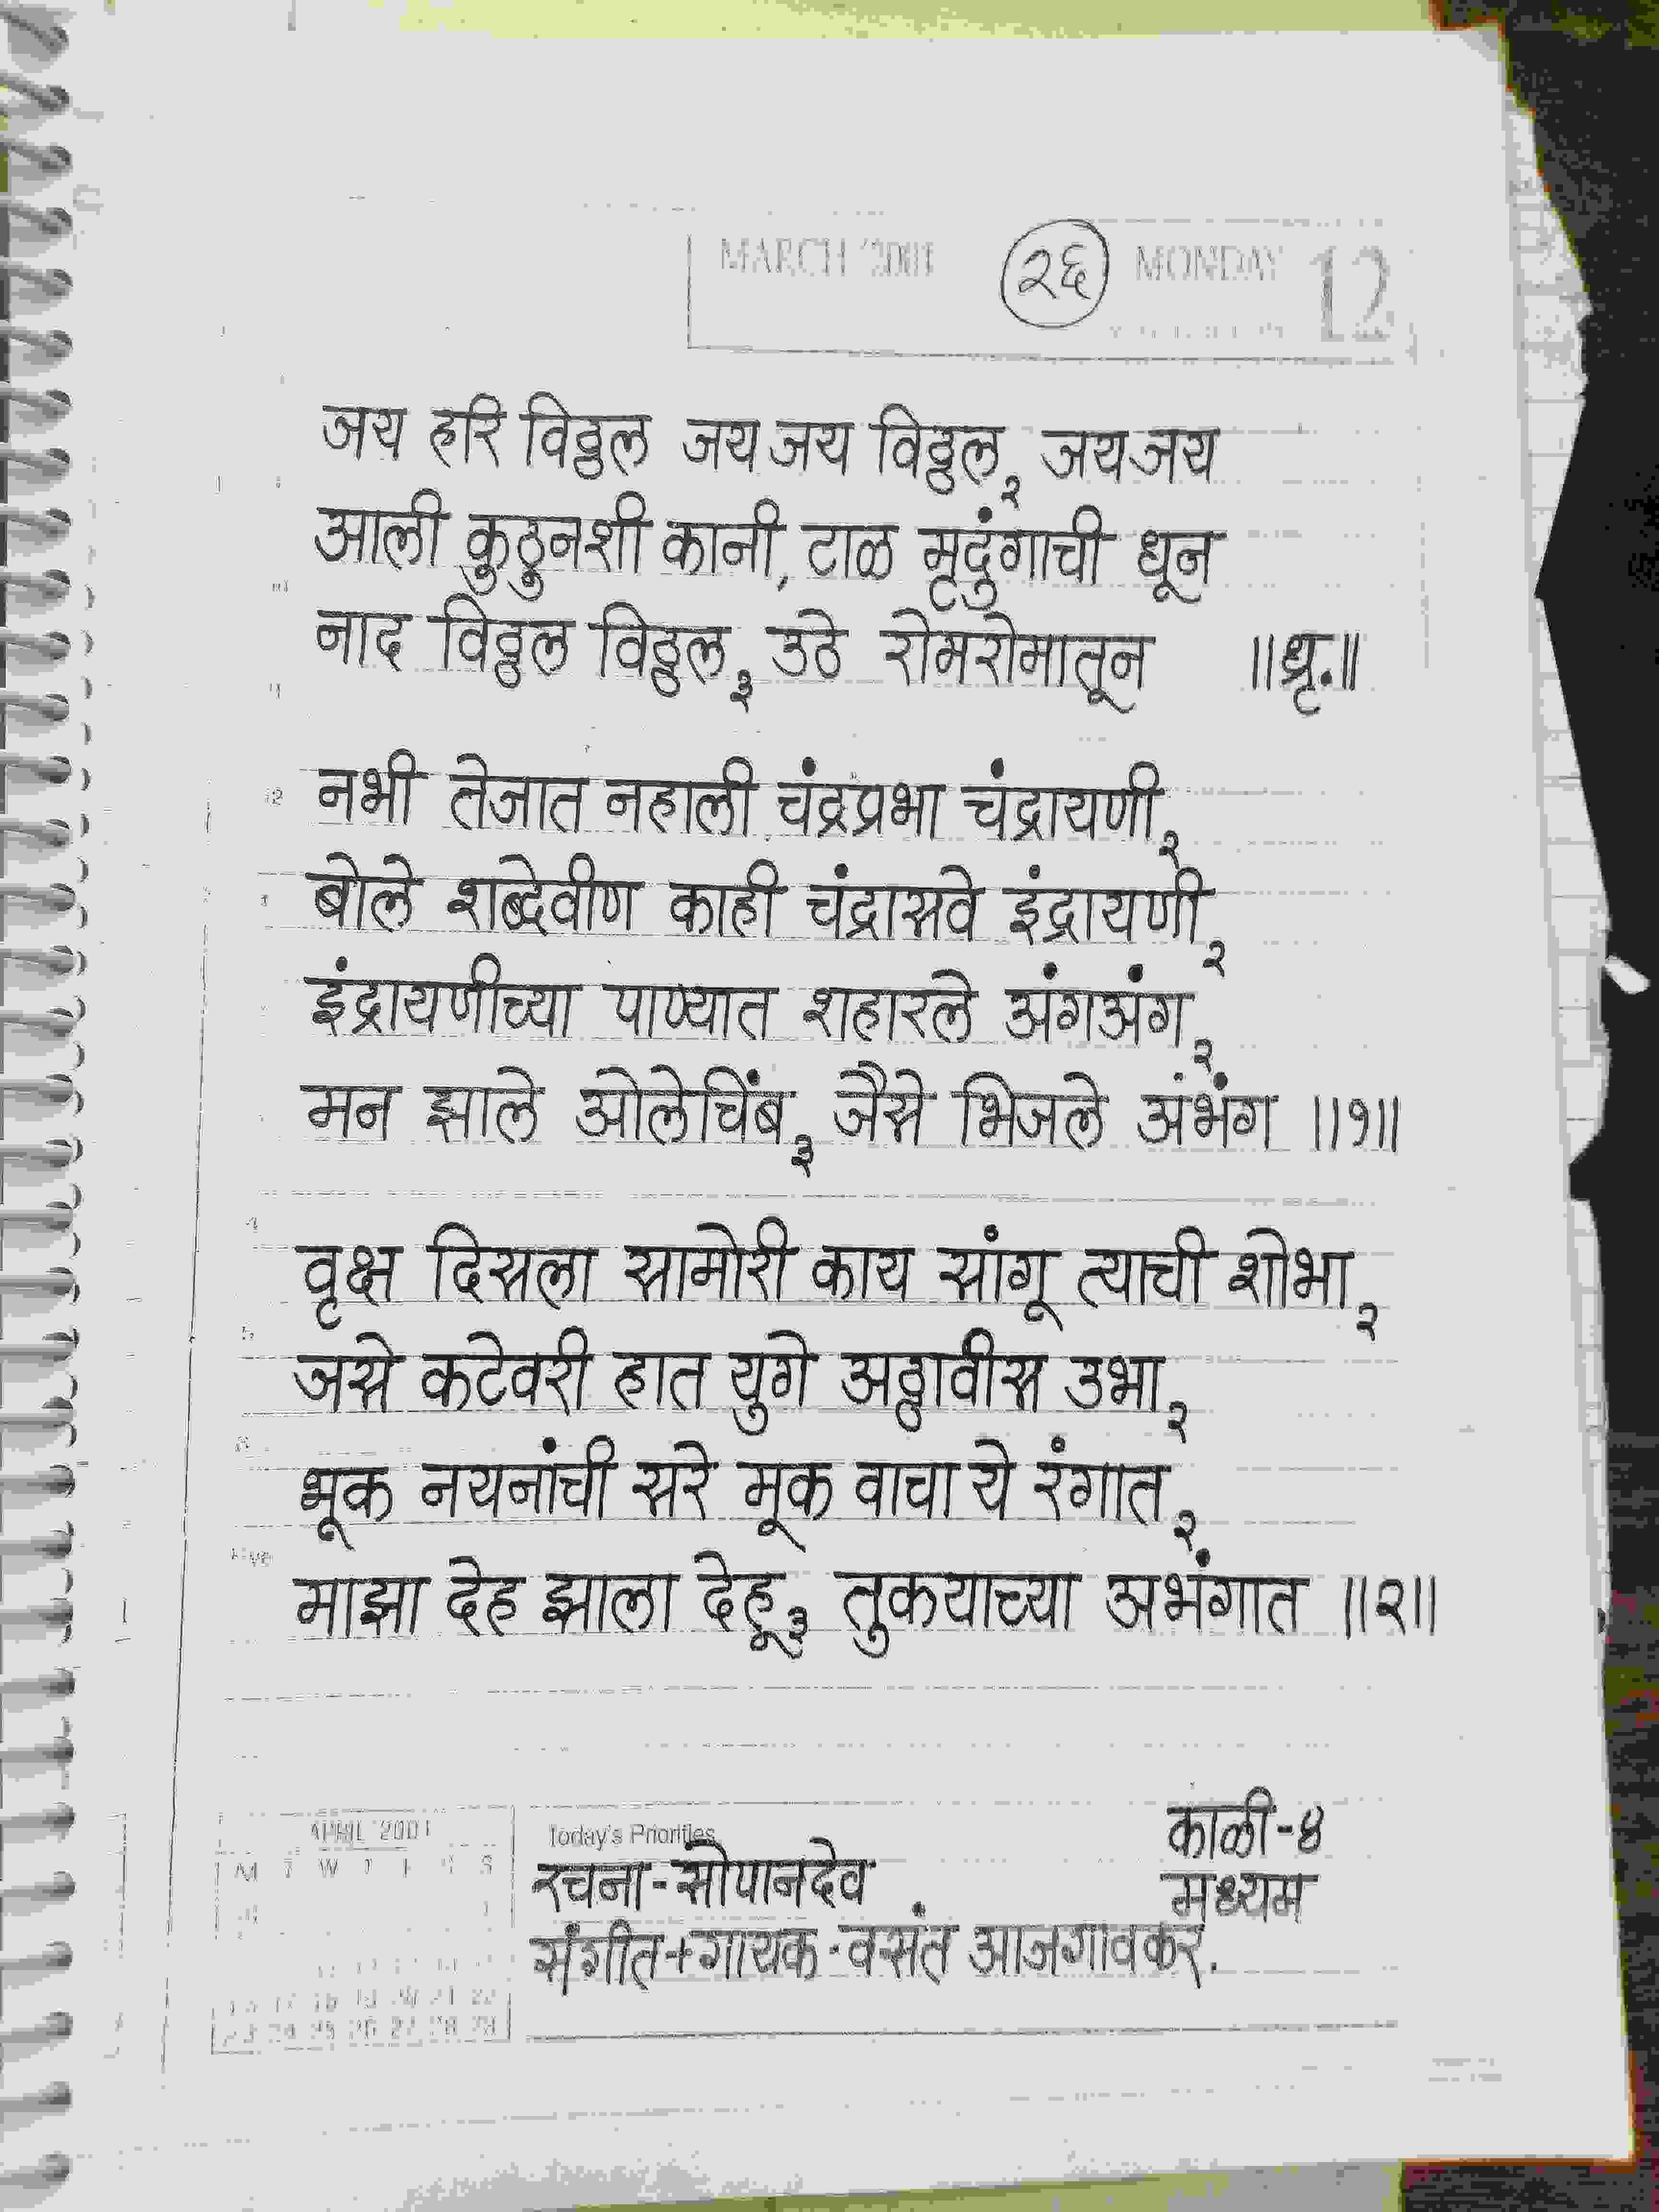 MARCH '2001 २६ MONDAY 12
जय हरि विठ्ठल जय जय विठ्ठल,२ जयजय
आली कुठुनशी कानी, टाळ मृदुंगाची धून
नाद विठ्ठल विठ्ठल,३ उठे रोमरोमातून ॥धृ.॥
नभी तेजात नहाली चंद्रप्रभा चंद्रायणी,२
बोले शब्देवीण काही चंद्रासवे इंद्रायणी,२
इंद्रायणीच्या पाण्यात शहारले अंगअंग,२
मन झाले ओलेचिंब,३ जैसे भिजले अंभंग ॥१॥
वृक्ष दिसला सामोरी काय सांगू त्याची शोभा,२
जसे कटेवरी हात युगे अठ्ठावीस उभा,२
भूक नयनांची सरे मूक वाचा ये रंगात,२
माझा देह झाला देहू,३ तुकयाच्या अभंगात ॥२॥
काळी-४
APRIL '2001 Today's Priorities
रचना-सोपानदेव मध्यम
संगीत+गायक-वसंत आजगावकर.